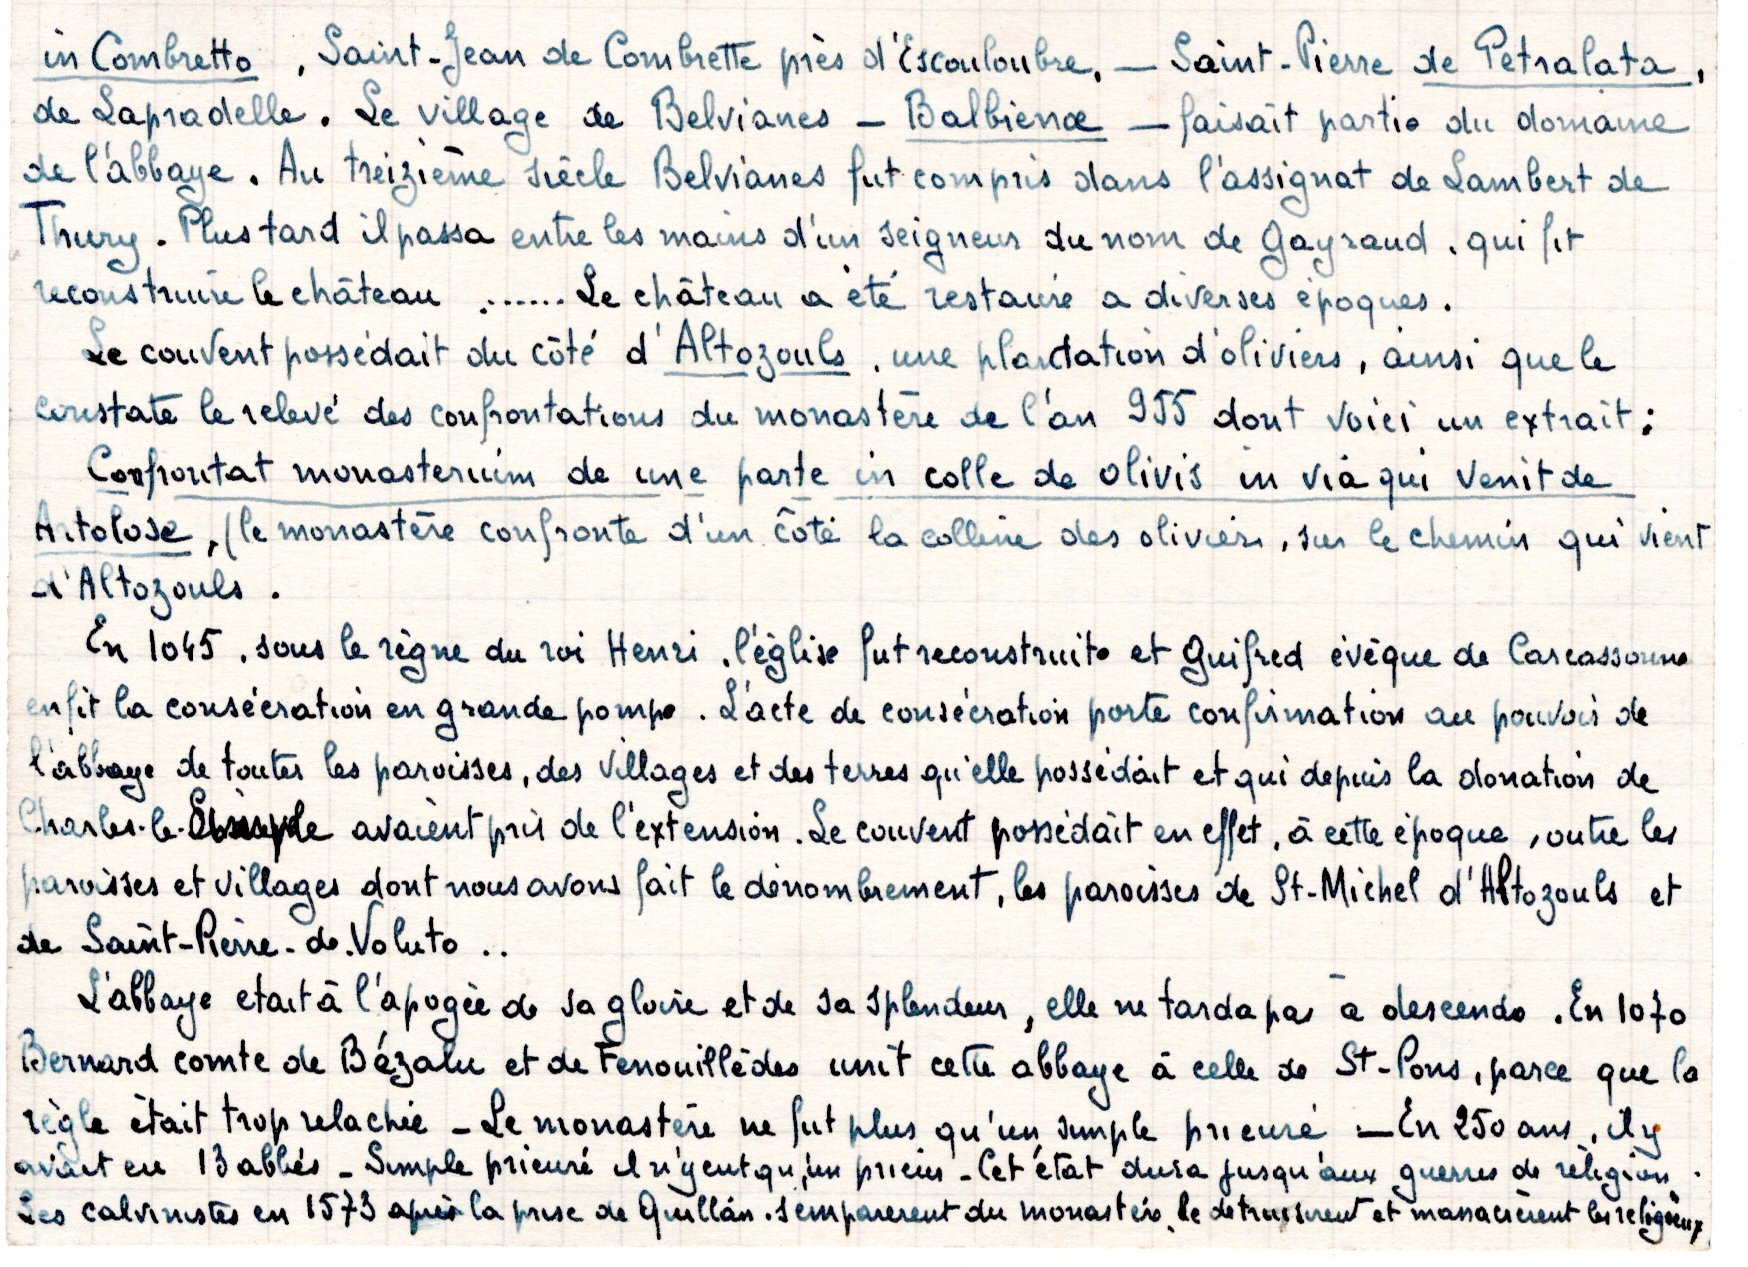 in Combretto, Saint-Jean de Combrette près d'Escouloubre, — Saint-Pierre de Petralata,
de Lapradelle. Le village de Belvianes — Balbienæ — faisait partie du domaine
de l'abbaye. Au treizième siècle Belvianes fut compris dans l'assignat de Lambert de
Thury. Plus tard il passa entre les mains d'un seigneur du nom de Gayraud, qui fit
reconstruire le château ....... Le château a été restauré a diverses époques.
Le couvent possédait du côté d'Altozouls, une plantation d'oliviers, ainsi que le
constate le relevé des confrontations du monastère de l'an 955 dont voici un extrait:
Confrontat monasterium de une parte in colle de olivis in via qui venit de
Artolose, (le monastère confronte d'un côté la colline des oliviers, sur le chemin qui vient
d'Altozouls.
En 1045, sous le règne du roi Henri, l'église fut reconstruite et Guifred évêque de Carcassonne
en fit la consécration en grande pompe. L'acte de consécration porte confirmation au pouvoir de
l'abbaye de toutes les paroisses, des villages et des terres qu'elle possédait et qui depuis la donation de
Charles-le-Simple avaient pris de l'extension. Le couvent possédait en effet, à cette époque, outre les
paroisses et villages dont nous avons fait le dénombrement, les paroisses de St-Michel d'Altozouls et
de Saint-Pierre-de-Voluto ..
L'abbaye etait à l'apogée de sa gloire et de sa splendeur, elle ne tarda pas à descendre. En 1070
Bernard comte de Bézalu et de Fenouillèdes unit cette abbaye à celle de St-Pons, parce que la
règle était trop relachée — Le monastère ne fut plus qu'un simple prieuré — En 250 ans, il y
avait eu 13 abbés — Simple prieuré il n'y eut qu'un prieur — Cet état dura jusqu'aux guerres de religion.
Les calvinistes en 1573 après la prise de Quillan, s'emparerent du monastère, le détruisirent et massacrèrent les religieux